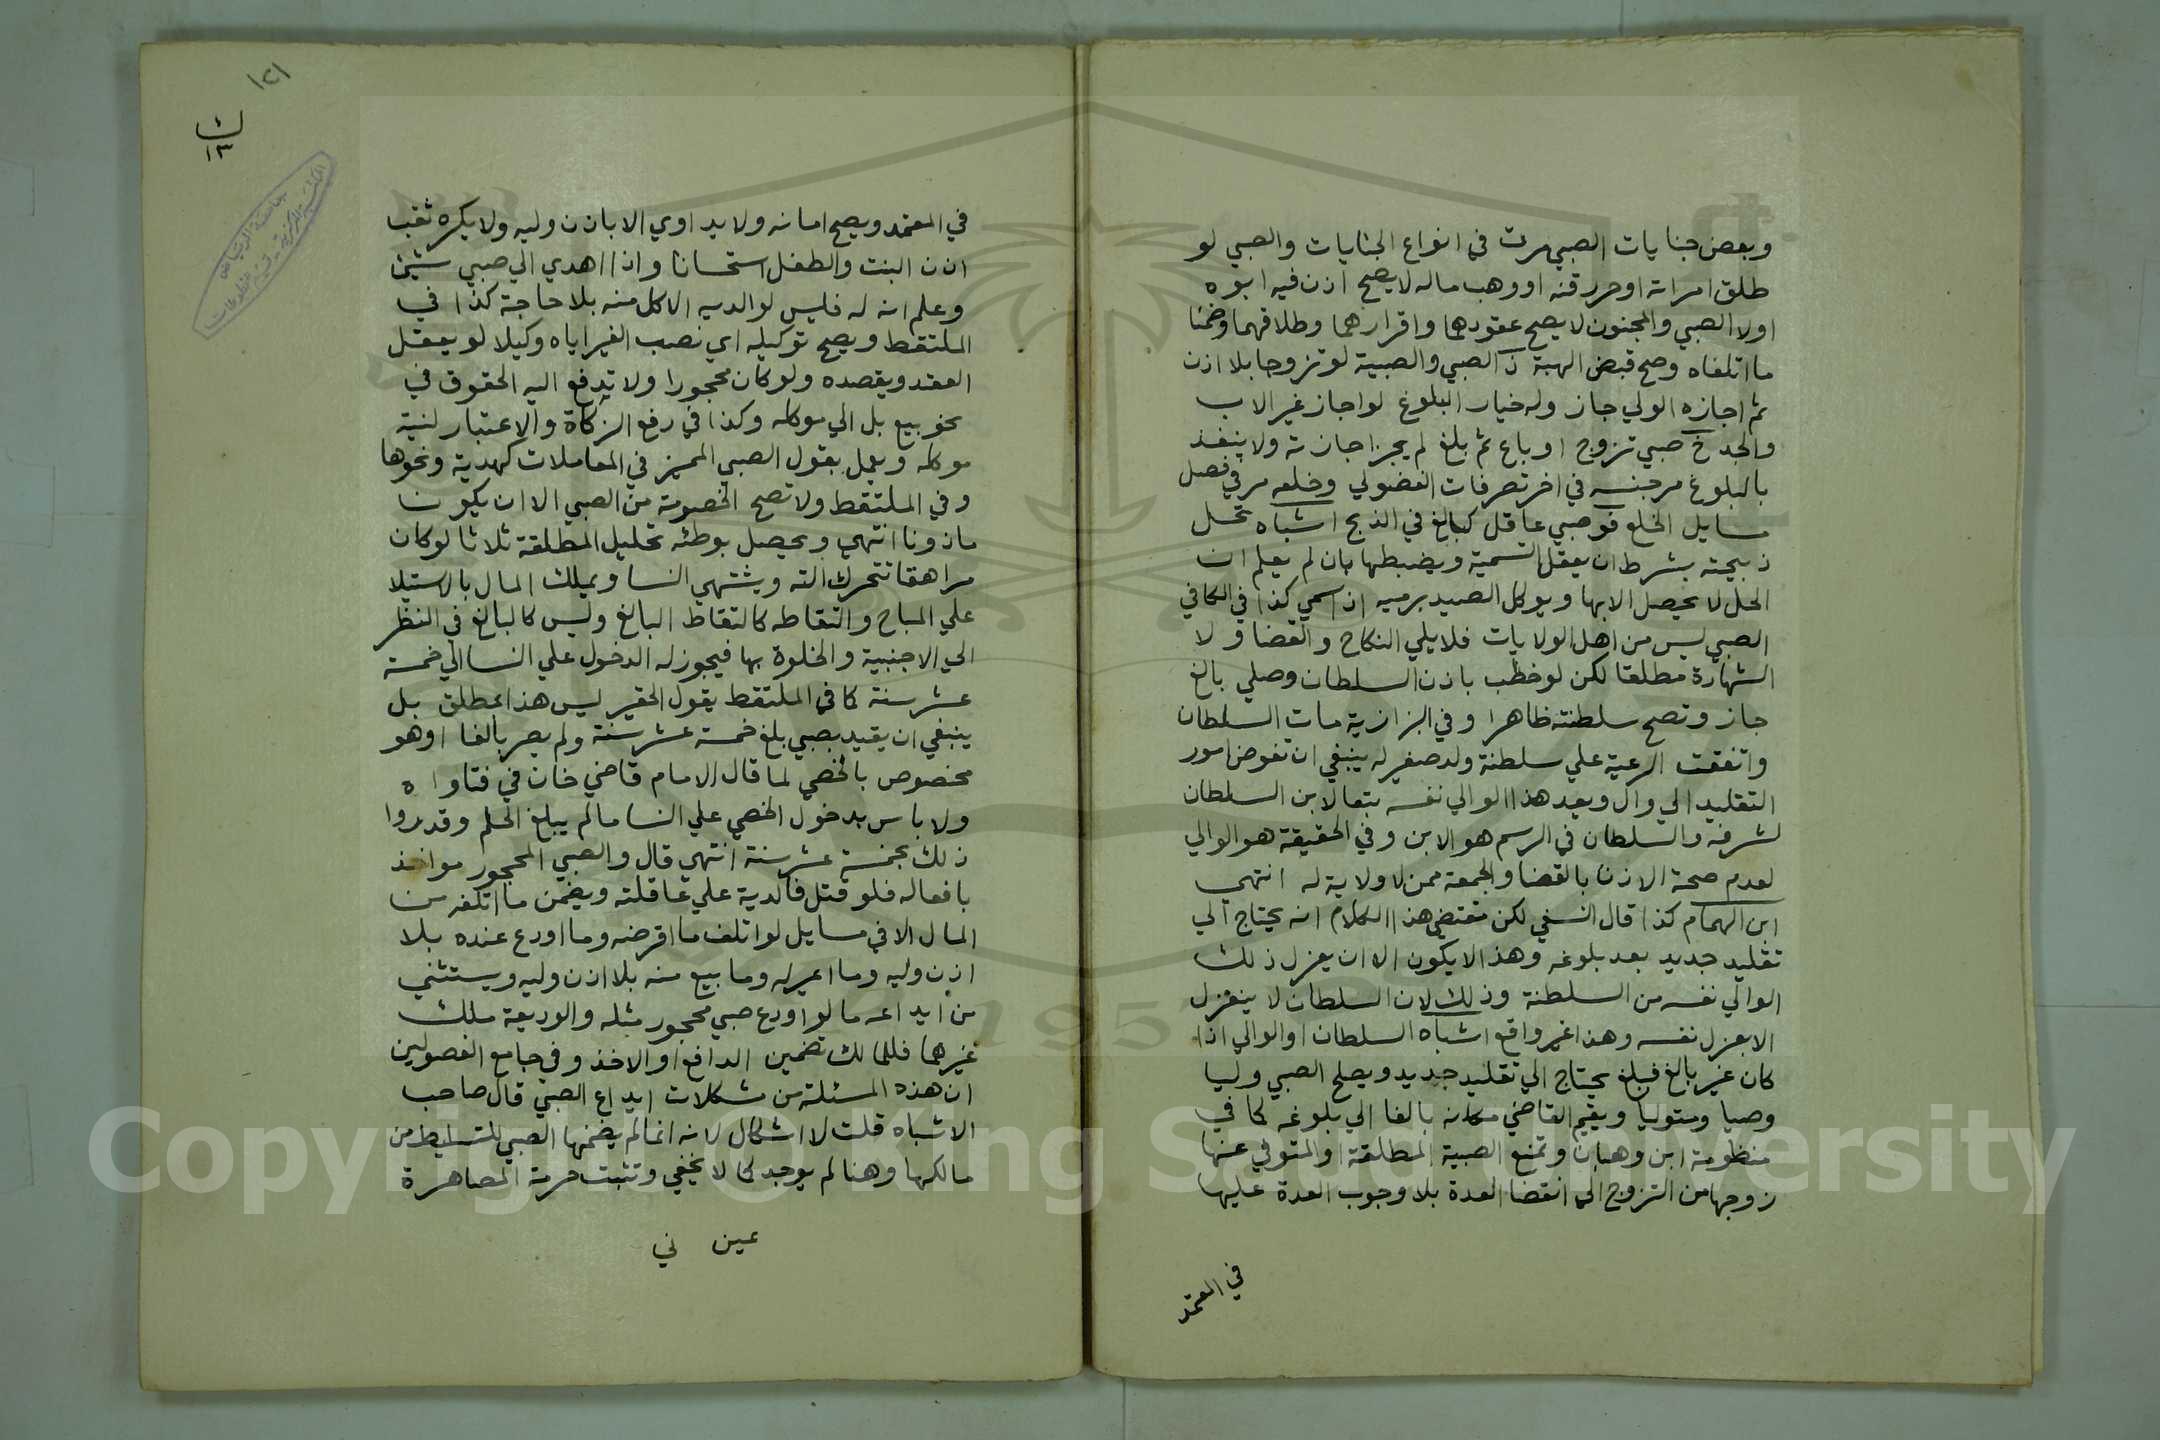 وبعض جنايات الصبي مرت في انواع الجنايات والصبي لو
طلق امراته او حرر قنه او وهب ماله لا يصح اذن فيه ابوه
اولا الصبي والمجنون لا يصح عقودهما واقرارهما وطلاقهما وضمنا
ما اتلفاه وصح قبض الهبة ذ الصبي والصبية لو تزوجا بلا اذن
ثم اجازه الولي جاز وله خيار البلوغ لو اجاز غير الاب
والجد خ صبي تزوج او باع ثم بلغ لم يجز اجازته ولا ينفذ
بالبلوغ مر جنسه في اخر تصرفات الفضولي وخلعه مر في فصل
مسايل الخلع فو صبي عاقل كبالغ في الذبح اشباه تحل
ذبيحته بشرط ان يعقل التسمية ويضبطها بان لم يعلم ان
الحل لا يحصل الا بها ويوكل الصيد برميه اذ اسمي كذا في الكافي
الصبي ليس من اهل الولايات فلا يلي النكاح والقضا ولا
الشهادة مطلقا لكن لو خطب باذن السلطان وصلي بالغ
جاز وتصح سلطنته ظاهرا وفي البزازية مات السلطان
واتفقت الرعية علي سلطنة ولد صغير له ينبغي ان تفوض امور
التقليد الي وال ويعد هذا الوالي نفسه تبعا لابن السلطان
لشرفه والسلطان في الرسم هو الابن وفي الحقيقة هو الوالي
لعدم صحة الاذن بالقضا والجمعة ممن لا ولاية له انتهي
ابن الهمام كذا قال النسفي لكن مقتضي هذا الكلام انه يحتاج الي
تقليد جديد بعد بلوغه وهذا لا يكون الا ان يعزل ذلك
الوالي نفسه من السلطنة وذلك لان السلطان لا ينعزل
الا بعزل نفسه وهذا غير واقع اشباه السلطان او الوالي اذا
كان غير بالغ فبلغ يحتاج الي تقليد جديد ويصلح الصبي وليا
وصيا ومتوليا ويقيم القاضي مكانه بالغا الي بلوغه كما في
منظومة ابن وهبان وتمنع الصبية المطلقة او المتوفي عنها
زوجها من التزوج الي انقضا العدة بلا وجوب العدة عليها
في المعتمد
١٢١
ث
١٣
جامعة الرياض
في المعتمد ويصح امانه ولا يداوي الا باذن وليه ولا يكره ثقب
اذن البنت والطفل استحسانا واذا اهدي الي صبي شيئ
وعلم انه له فليس لوالديه الاكل منه بلا حاجة كذا في
الملتقط ويصح توكيله اي نصب الغير اياه وكيلا لو يعقل
العقد ويقصده ولو كان محجورا ولا تدفع اليه الحقوق في
نحو بيع بل الي موكله وكذا في رفع الزكاة والاعتبار لنية
موكله ويعمل بقول الصبي المميز في المعاملات كهدية ونحوها
وفي الملتقط ولا تصح الخصومة من الصبي الا ان يكون
ماذونا انتهي ويحصل بوطئه تحليل المطلقة ثلاثا لو كان
مراهقا تتحرك الته ويشتهي النسا ويملك المال بالاستيلا
علي المباح والتقاطه كالتقاط البالغ وليس كالبالغ في النظر
الي الاجنبية والخلوة بها فيجوز له الدخول علي النسا الي خمسة
عشر سنة كما في الملتقط يقول الحقير ليس هذا بمطلق بل
ينبغي ان يقيد بصبي بلغ خمسة عشر سنة ولم يصر بالغا او هو
مخصوص بالخصي لما قال الامام قاضي خان في فتاواه
ولا باس بدخول الخصي علي النسا مالم يبلغ الحلم وقدروا
ذلك بخمسة عشر سنة انتهي قال والصبي المحجور مواخذ
بافعاله فلو قتل فالدية علي عاقلته ويضمن ما اتلفه من
المال الا في مسايل لو اتلف ما اقرضه وما اودع عنده بلا
اذن وليه وما اعير له وما بيع منه بلا اذن وليه ويستثني
من ايداعه ما لو اودع صبي محجور مثله والوديعة ملك
غيرهما فللمالك تضمين الدافع او الاخذ وفي جامع الفصولين
ان هذه المسئلة من مشكلات ايداع الصبي قال صاحب
الاشباه قلت لا اشكال لانه انما لم يضمنها الصبي للتسليط من
مالكها وهنا لم يوجد كما لا يخفي وتثبت حرمة المصاهرة
عين ني
Copyright © King Saud University
1957